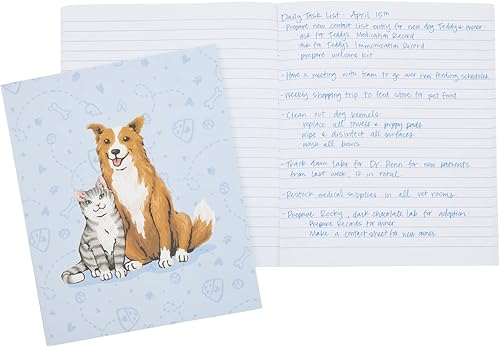 Daily Task List - April 15th
- Prepare new contact list entry for new dog Teddy & owner
ask for Teddy's Medication Record
ask for Teddy's Immunization Record
prepare welcome kit
- Have a meeting with team to go over new feeding schedules
- Weekly shopping trip to feed store for pet food
- Clean out dog kennels
replace all towels & puppy pads
wipe & disinfect all surfaces
wash all bowls
- Track down labs for Dr. Renn for new patients
from last week, 12 in total
- Restock medical supplies in all vet rooms
- Prepare Rocky, dark chocolate lab for adoption
Prepare Records for owner
Make a contact sheet for new owner